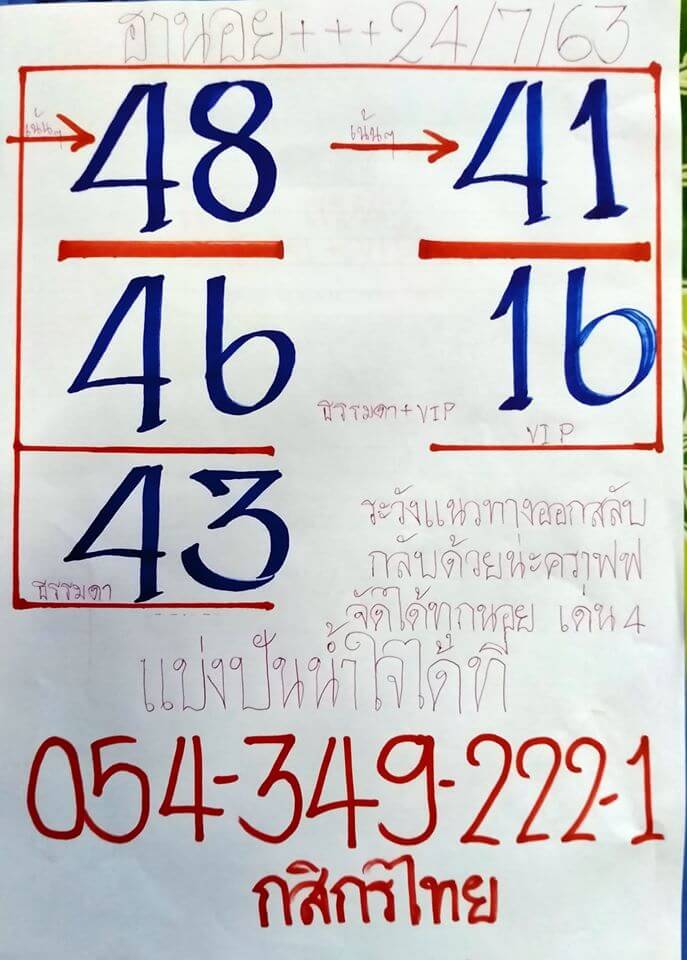 ฮานอย+++24/7/63
เน้นๆ 48 เน้นๆ 41
46 16
ธรรมดา+VIP VIP
43
ธรรมดา
ระวังแนวทางออกสลับ
กลับด้วยน่ะคราฟฟ
จัดได้ทุกนอย เด่น 4
แบ่งปันน้ำใจได้ที่
054-349-222-1
กสิกรไทย